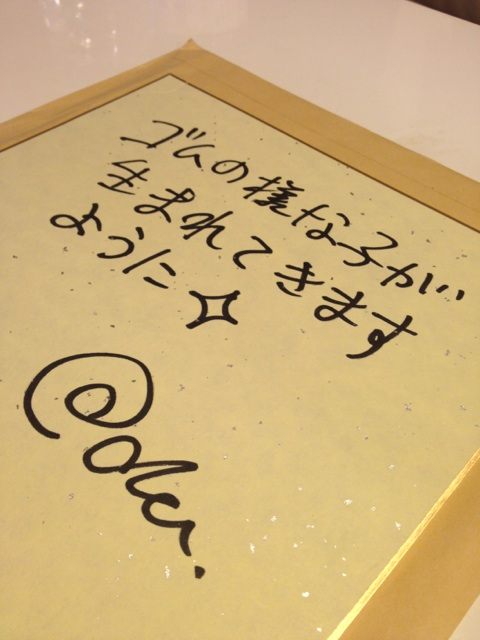 ゴムの様な子が
生まれてきます
ように